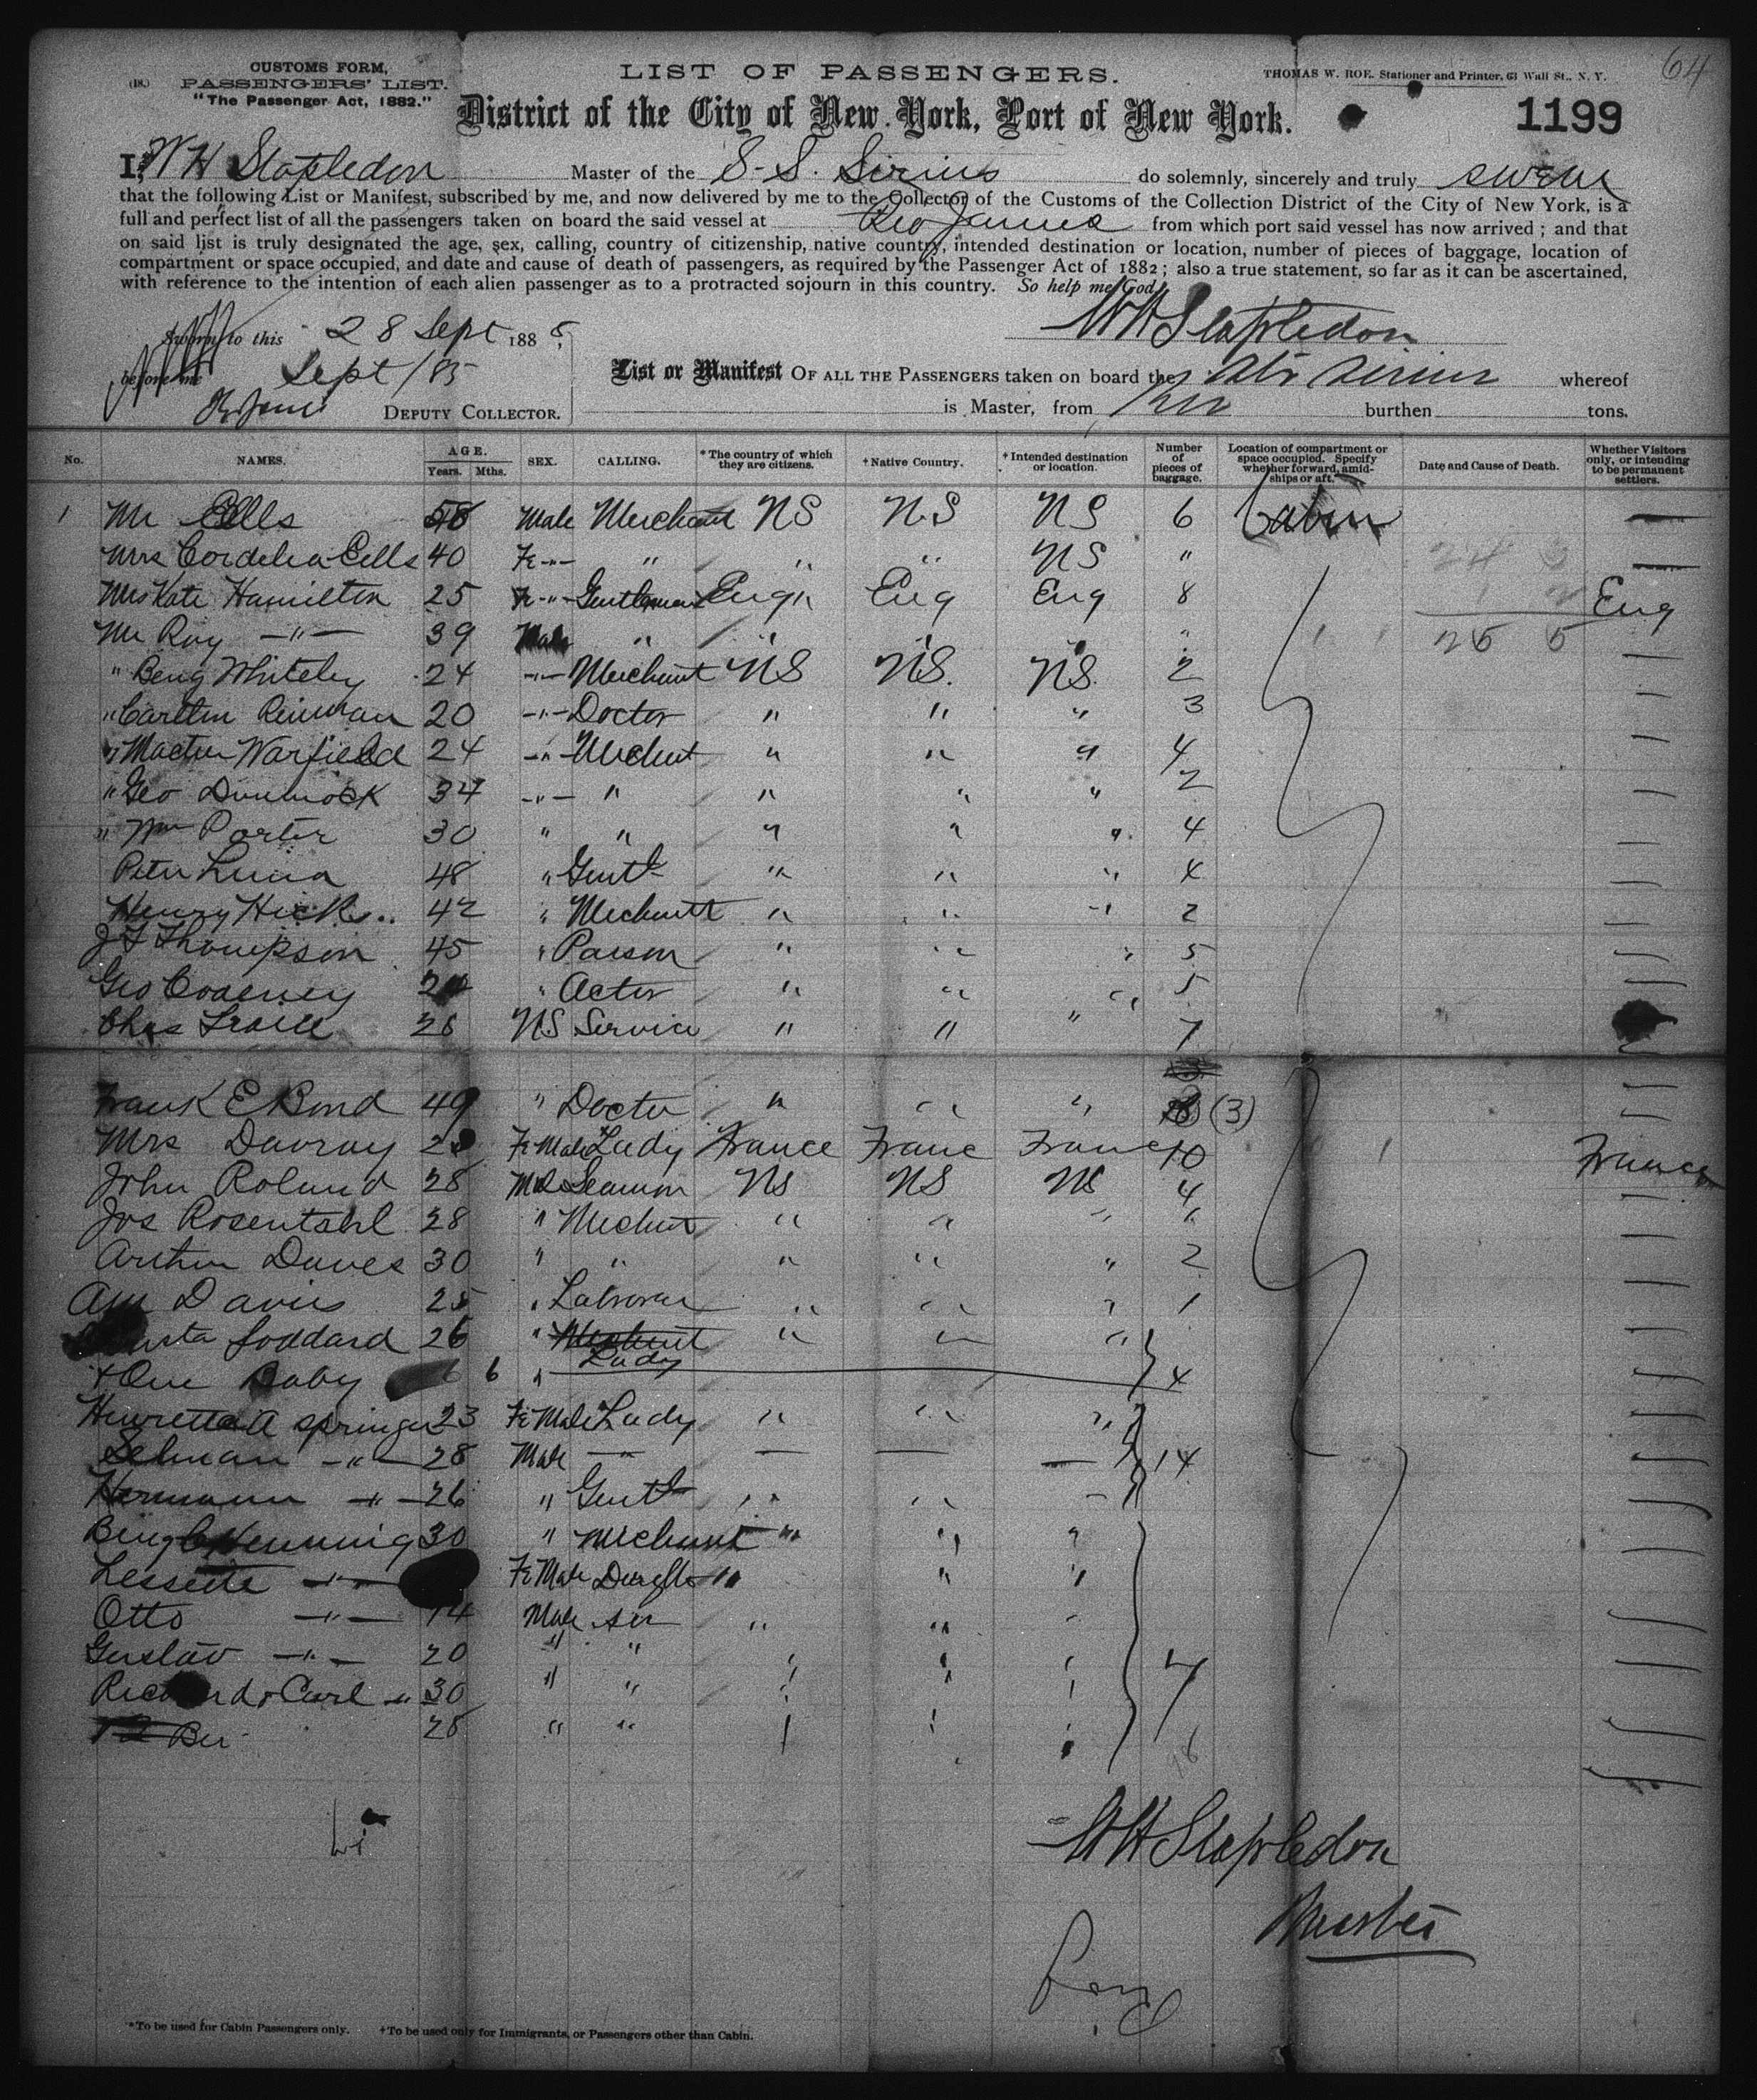 64
CUSTOMS FORM,
PASSENGERS' LIST.
"The Passenger Act, 1882."
LIST OF PASSENGERS.
THOMAS W. ROE, Stationer and Printer, 63 Wall St., N. Y.
District of the City of New York, Port of New York.
1199
I, W H Stapledon Master of the S.S. Sirius do solemnly, sincerely and truly swear
that the following List or Manifest, subscribed by me, and now delivered by me to the Collector of the Customs of the Collection District of the City of New York, is a
full and perfect list of all the passengers taken on board the said vessel at Rio Janeiro from which port said vessel has now arrived; and that
on said list is truly designated the age, sex, calling, country of citizenship, native country, intended destination or location, number of pieces of baggage, location of
compartment or space occupied, and date and cause of death of passengers, as required by the Passenger Act of 1882; also a true statement, so far as it can be ascertained,
with reference to the intention of each alien passenger as to a protracted sojourn in this country. So help me God.
W H Stapledon
Sworn to this 28 Sept 1885
before me Sept /85
DEPUTY COLLECTOR.
List or Manifest OF ALL THE PASSENGERS taken on board the Str Sirius whereof
is Master, from Rio burthen tons.
No. NAMES. AGE. Years. Mths. SEX. CALLING. *The country of which they are citizens. †Native Country. †Intended destination or location. Number of pieces of baggage. Location of compartment or space occupied. Specify whether forward, amidships or aft. Date and Cause of Death. Whether Visitors only, or intending to be permanent settlers.
1 Mr Ells 58 Male Merchant NS NS NS 6 Cabin
Mrs Cordelia Ells 40 Fe -"- " " " NS " 24 3
Mrs Kate Hamilton 25 Fe -"- Gentleman Eng Eng Eng 8 Eng
Mr Roy -"- 39 Male " " " " " 25 5
" Benj Whiteley 24 -"- Merchant NS NS. NS. 2
" Carlton 20 -"- Doctor " " " 3
" Warfield 24 -"- Mechant " " " 4
" Geo Dimmock 34 -"- " " " " 2
" Wm Porter 30 " " " " " 4
Peter 48 " Gentl " " " 4
Henry Hicks 42 " Mechant " " " 2
J F Thompson 45 " Parson " " " 5
Geo " Actor " " " 5
Chas 28 NS Service " " " 7
Frank E Bond 49 " Doctor " " " (3)
Mrs Davray Fe Male Lady France Franc Franc 10 France
John Roland 28 Male Seamon NS NS NS 4
Jos Rosentahl 28 " Mechant " " " "
Arthur 30 " " " " " 2
Davis 25 " Laborar " " " 1
Goddard 26 " Mechant " " "
Lady
+ One Baby 6 " 4
Henretta A Springer 23 Fe Male Lady " " "
Selman -"- 28 Male -"- — — — 14
Hermann -"- 26 " Gentl " " "
Benj C Henning 30 " Mechant " " "
-"- Fe Male " " "
Otto -"- 14 Male " " "
Gustav -"- 20 " " " " "
Richard & Carl -"- 30 " " " " " 7
28 " "
W H Stapledon
Master
*To be used for Cabin Passengers only. †To be used only for Immigrants, or Passengers other than Cabin.